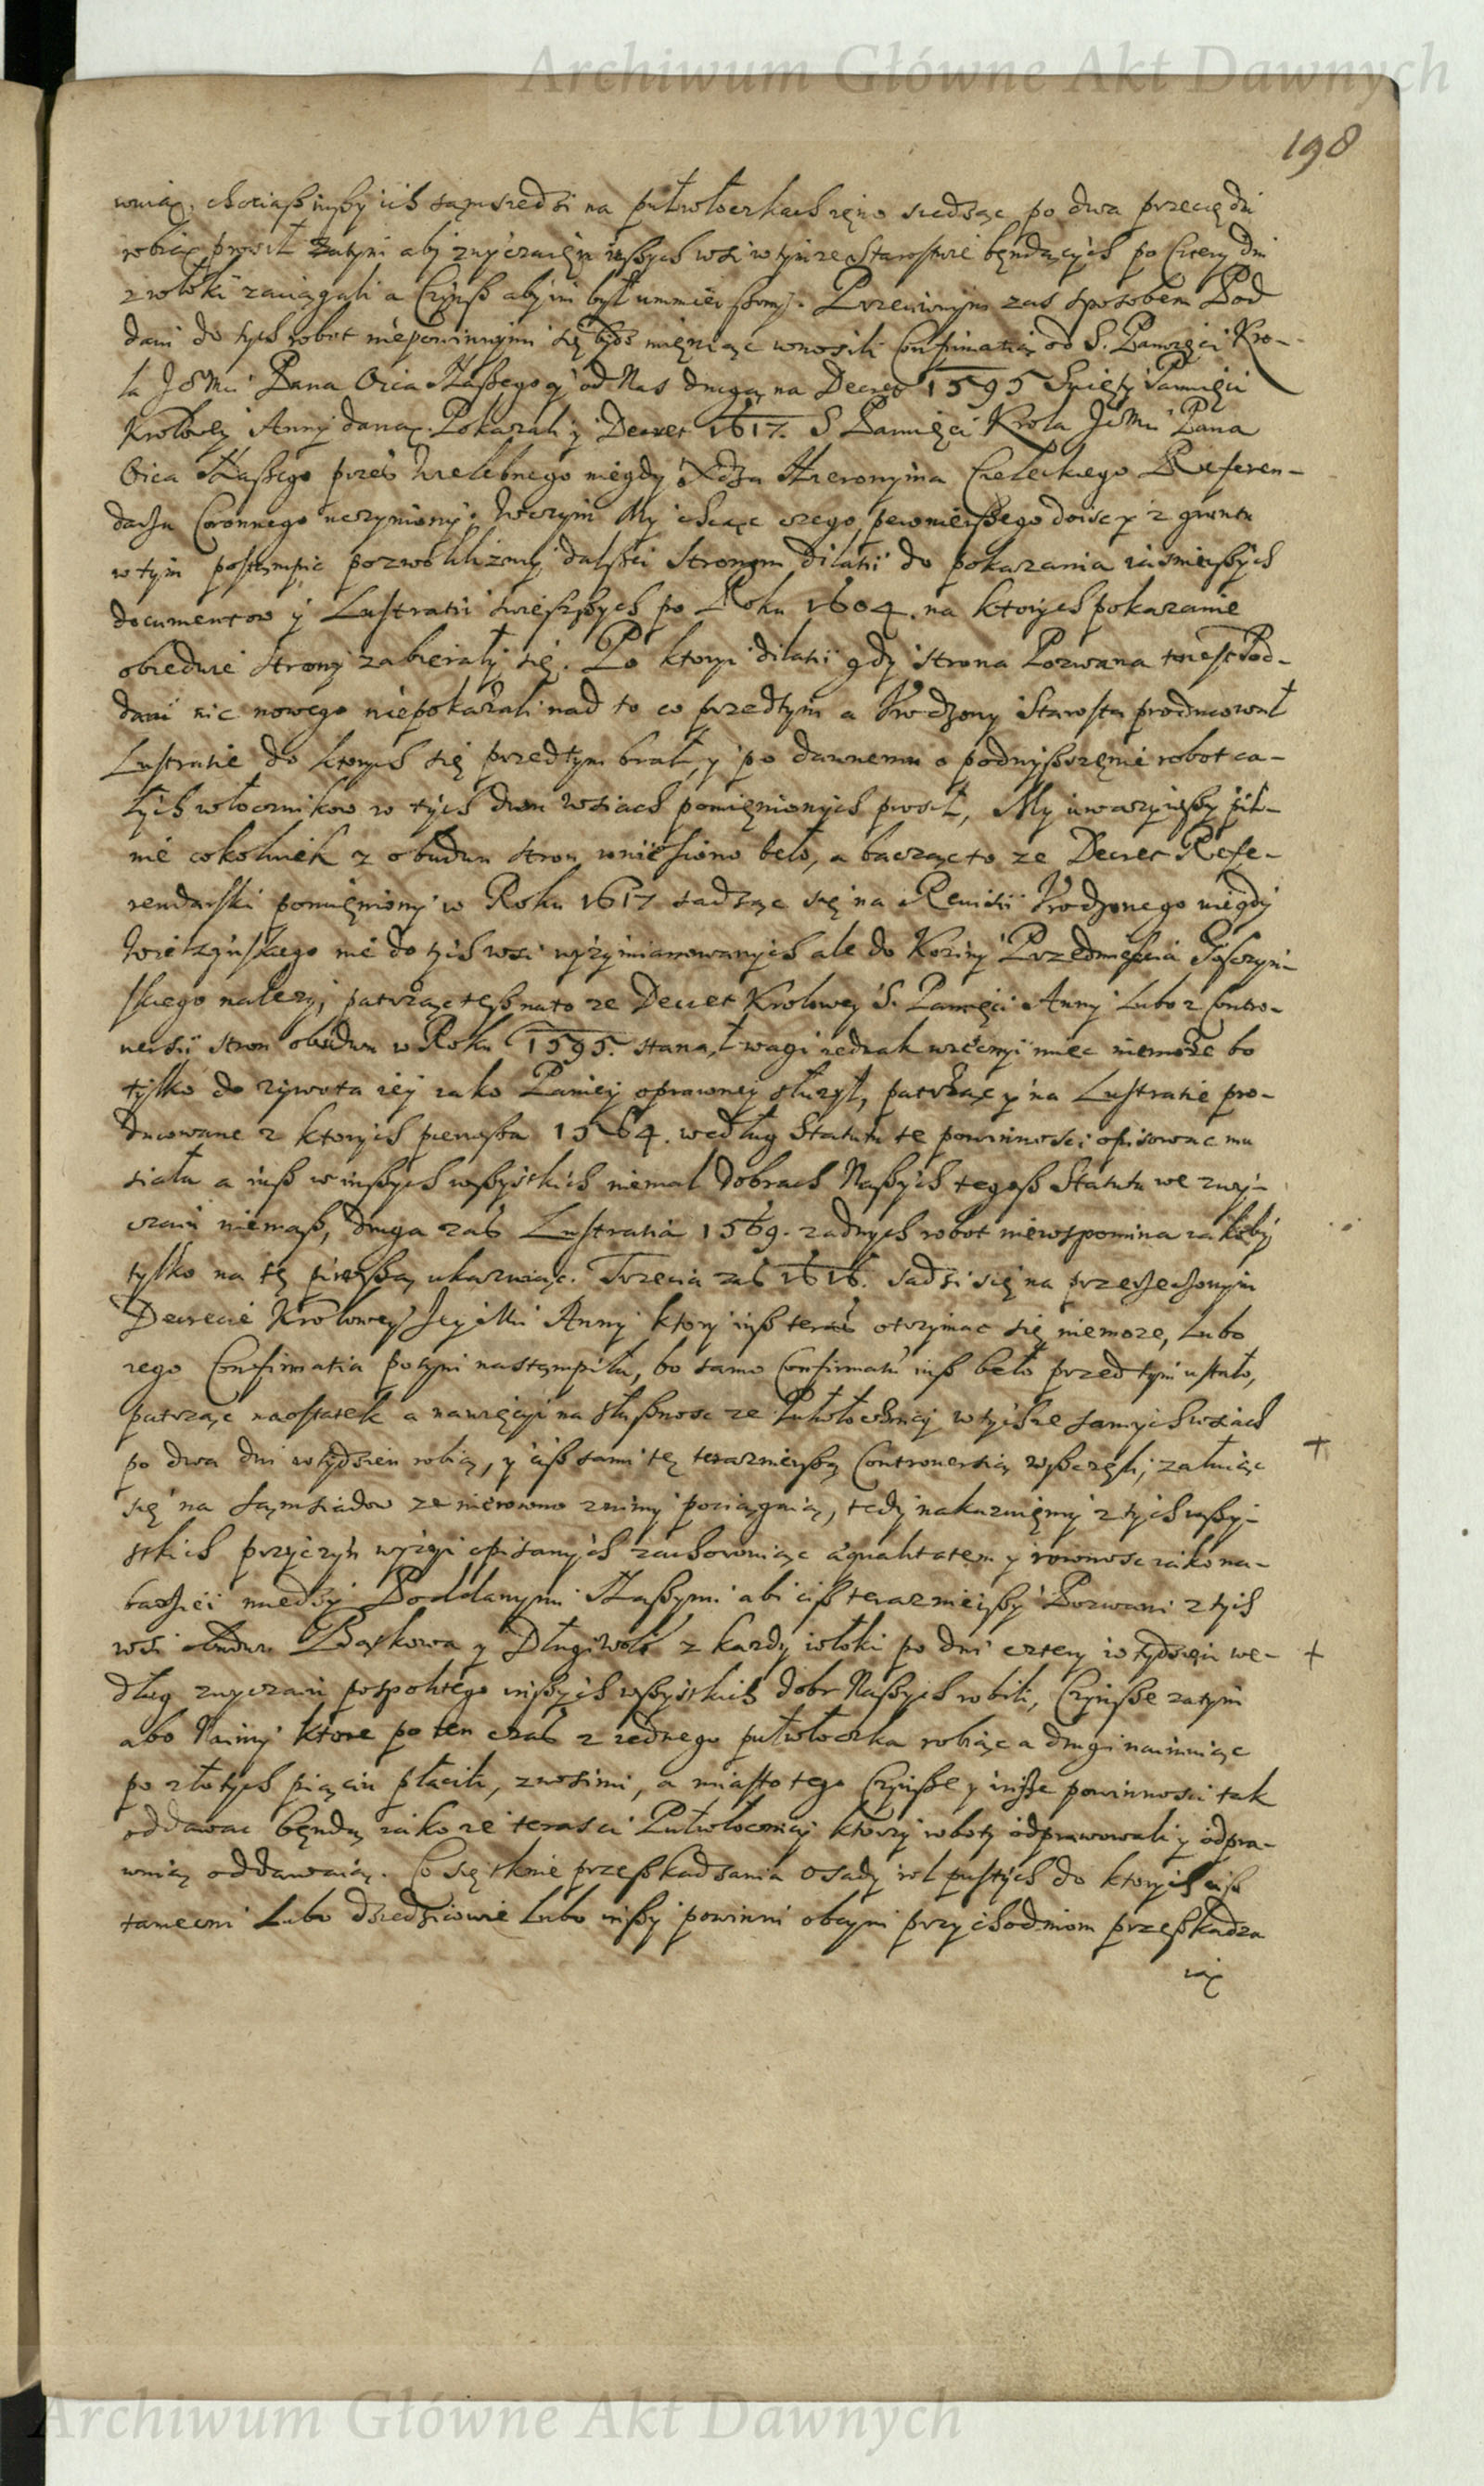 Archiwum Główne Akt Dawnych
198
wnią, chociaß inßy ich sąmsiedzi na pułwłoczkach ręno siedząc po dwa przecię dni
robią prosił zatym aby zwyczaięm inßych wsi w tymze Starostwie będących po Cztery dni
z włoki zaciągali a Czynß aby im był ummieißony. Przeciwnym zas sposobem Pod
dani do tych robot niepowinnymi się bydz mięniąc wnosili Confirmatią od S. Pamięci Kro-
la Je° Mci Pana Oica Naßego y od Nas drugą na Decret 1595 Swięty Pamięci
Krolowey Anny daną. Pokazali y Decret 1617. S Pamięci Krola Je° Mci Pana
Oica Naßego przez Wielebnego niegdy Xdza Hieronyma Cieleckiego Referen-
darza Coronnego uczyniony. W czym My chcąc czego pewnieißego doisc y z gruntu
w tym postąmpic pozwolilizmy dalßei Stronom dilatii do pokazania iasnieißych
documentow y Lustratii swieszßych po Roku 1604. na ktorych pokazanie
obiedwie strony zabierały się. Po ktorey dilatii gdy strona Pozwana to iest Pod-
dani nic nowego niepokazali nad to co przedtym a Urodzony Starosta producował
Lustratie do ktorych się przedtym brał, y po dawnemu o podwyßszęnie robot ca-
łych włocznikow w tych dwu wsiach pomięnionych prosił, My uwazywßy pil-
nie cokolwiek z obudwu stron wniesiono beło, a bacząc to ze Decret Refe-
rendarski pomięniony w Roku 1617 sadząc się na Remisii Urodzonego niegdy
nie do tych wsi wyzymianowanych ale do Koziny Przedmiescia
skiego nalezy, patrząc teß na to ze Decret Krolowey S. Pamięci Anny lubo z Contro-
uersii stron obudwu w Roku 1595. stanął wagi iednak wieczny miec niemoze bo
tylko do zywota iey iako Paniey oprawney słuzył, patrząc y na Lustratie pro-
ducowane z ktorych pierwßa 1564. według Statutu te powinnosci opisowac mu
siała a iuß w inßych wßystkich niemal dobrach Naßych tegoß Statutu we zwy-
czaiu niemaß, druga zas Lustratia 1569. zadnych robot niewspomina iakoby
tylko na tę pirwßą ukazuiąc. Trzecia zas 1616. sadzi się na przerzeczonym
Decrecie Krolowey Jey Mci Anny ktory iuß teras otrzymac się niemoze, lubo
iego Confirmatia potym nastąmpiła, bo samo Confirmati iuß beło przed tym ustało,
patrząc naostatek a nawięcyi na słußnosc ze Pułwłocznicy w tychze samych wsiach
po dwa dni w tydzien robią, y ciß sami tę terazmeißą Controuersią wßczęli, załuiąc
się na sąmsiadow ze nierowno z nimi pociągaią, tedy nakazuięmy z tych wßy-
stkich przyczyn wyzyi opisanych zachowuiąc aqualitatem y rownosc iako na-
barziei miedzy Poddanymi Naßymi abi ciß terazmeißy Pozwani z tych
wsi obudwu Paskowa y Długiwoli z kazdy włoki po dni cztery w tydzięn we-
dług zwyczaiu pospolitego inßych wßystkich dobr Naßych robili, Czynße zatym
abo Naimy ktore po ten czas z iednego pułwłoczka robiąc a drugi naimuiąc
po złotych pięciu płacili, znosimi, a miasto tego Czynße y insze powinnosci tak
oddawac będą iako ie teras ci Pułwłocznicy ktorzy roboty odprawowali y odpra-
wuią oddawaią. Co się tknie przeßkadzania osady rol pustych do ktorych ciß
tameczni lubo dziedzicowie lubo inßy powinni obcym przychodniom przeßkadza
ią
Archiwum Główne Akt Dawnych